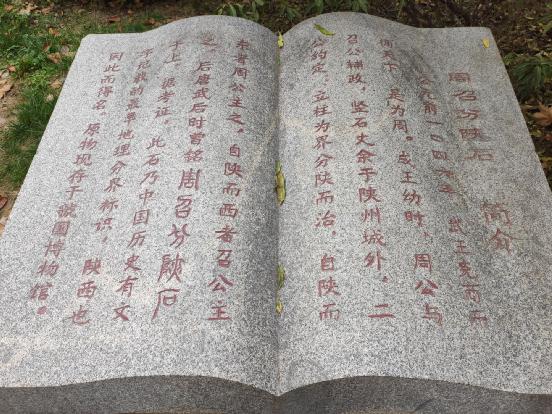 周召分陕石 简介
公元前一〇四六年 武王克商而
有天下，是为周。成王幼时，周公与
召公辅政，竖石丈余于陕州城外，二
公约定，立柱为界分陕而治，自陕而
东者周公主之，自陕而西者召公主
之，后唐武后时曾铭周召分陕石
于上，据考证，此石乃中国历史有文
字记载的最早地理分界标识，陕西也
因此而得名，原物现存于虢国博物馆。